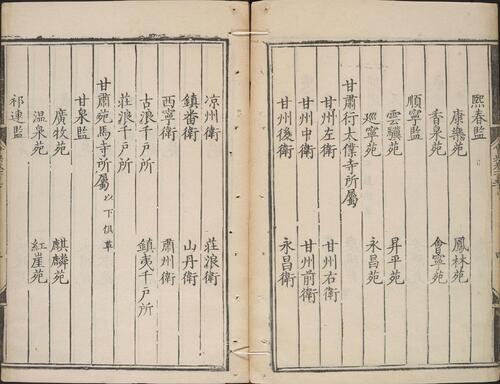 熙春監
康樂苑 鳳林苑
香泉苑 會寧苑
順寧監
雲驥苑 昇平苑
巡寧苑 永昌苑
甘肅行太僕寺所屬
甘州左衛 甘州右衛
甘州中衛 甘州前衛
甘州後衛 永昌衛
凉州衛 莊浪衛
鎮番衛 山丹衛
西寧衛 肅州衛
古浪千戶所 鎮夷千戶所
莊浪千戶所
甘肅苑馬寺所屬 以下俱革
甘泉監
廣牧苑 麒麟苑
温泉苑 紅崖苑
祁連監